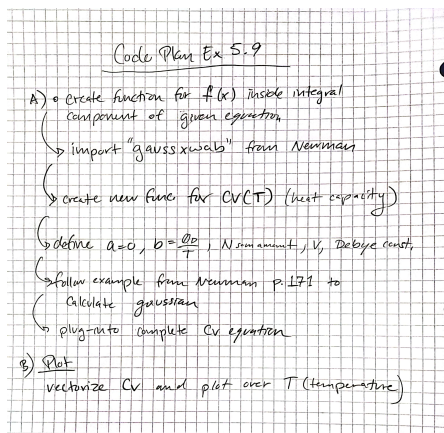 Code Plan Ex 5.9
A) • create function for f(x) inside integral
component of given equation
→ import "gaussxwab" from Newman
→ create new func for CV(T) (heat capacity)
→ define a=0, b=θD/T, N sum amount, V, Debye const.
→ follow example from Newman p. 171 to
calculate gaussian
→ plug-into complete Cv equation
B) Plot
vectorize Cv and plot over T (temperature)